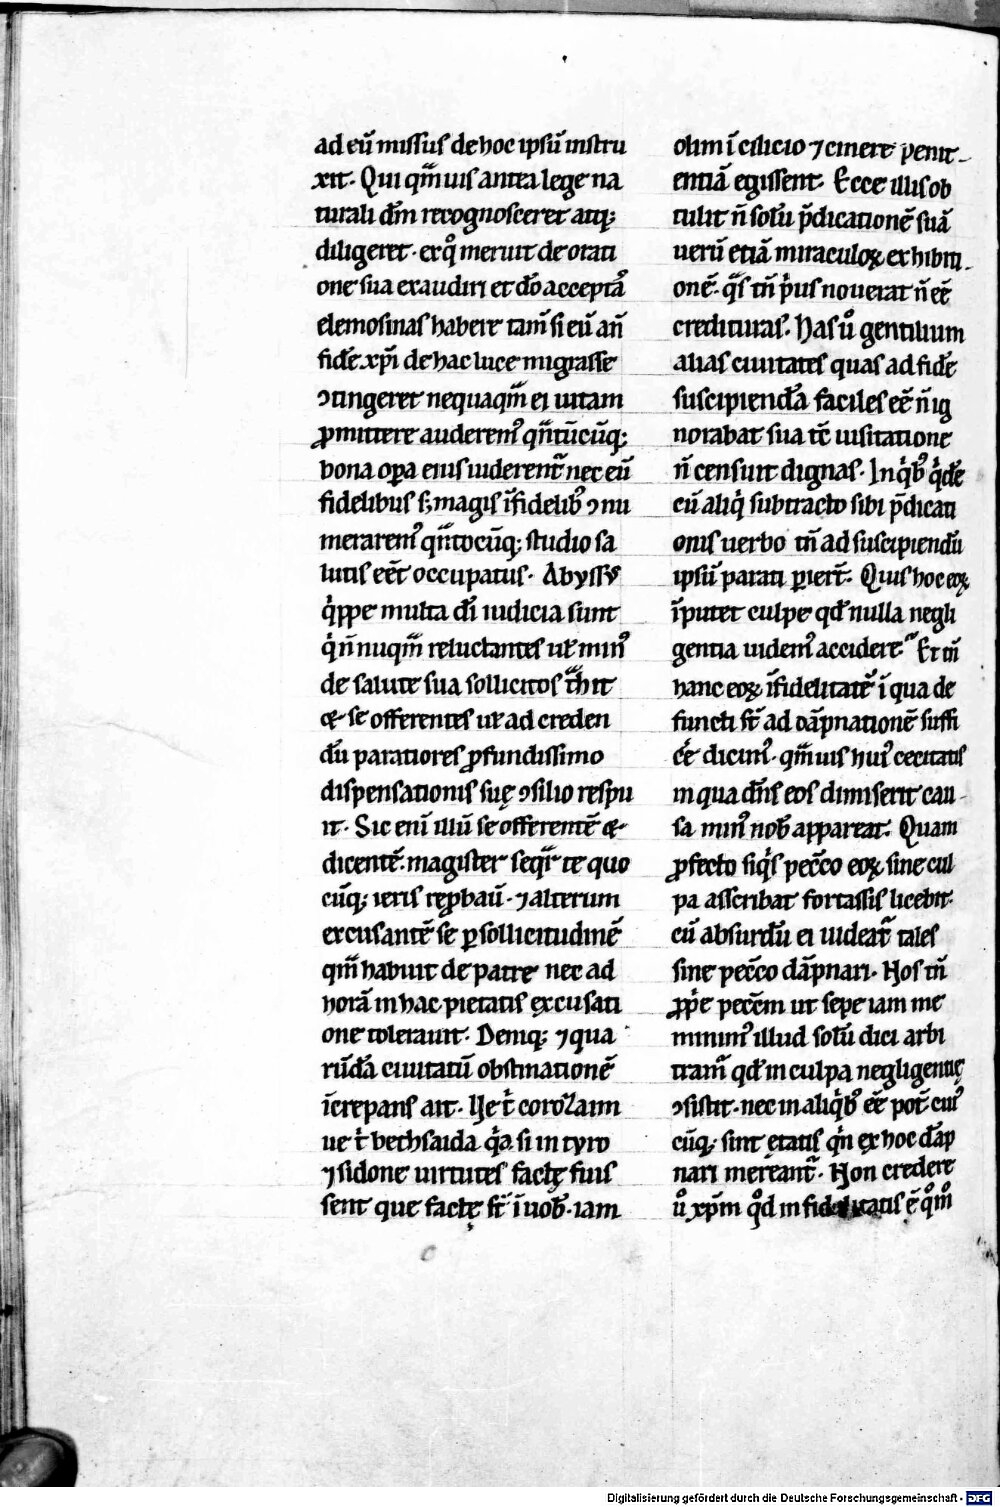 ad eū missus de hoc ipsū instru
xit. Qui qm̄uis antea lege na
turali dm̄ recognosceret atq;
diligeret. ex qͦ meruit de orati
one sua exaudiri et dō acceptā
elemosinas habere tam̄ si eū an̄
fidē xp̄i de hac luce migrasse
ↄtingeret nequaqm̄ ei uitam
ꝓmittere auderemꝰ qn̄tūcūq;
bona oꝑa eius uiderent᷑ nec eū
fidelibus s; magis īfidelibꝫ ↄnu
meraremꝰ qn̄tocūq; studio sa
lutis eēt occupatus. Abyssus
qͥppe multa dī iudicia sunt
qͥ n̄nuqm̄ reluctantes ut minꝰ
de salute sua sollicitos th̄it
⁊ se offerentes ut ad creden
dū paratiores ꝓfundissimo
dispensationis suę ↄsilio respu
it. Sic enī illū se offerentē ⁊
dicentē. magister seqr̄ te quo
cūq; ieris reꝓbauı̄. ⁊ alterum
excusantē se ꝑ sollicitudinē
qm̄ habuit de patre nec ad
horā in hac pietatis excusati
one tolerauit. Deniq; ⁊ qua
rūdā ciuitatū obstinationē
īcrepans ait. Ve tͥ corozaim
ue tͥ bethsaida qͥa si in tyro
⁊ sidone uirtutes factę fuis
sent que factę st̄ ī uob̄. iam
olim ī cilicio ⁊ cinere penit
entiā egissent. Ecce illis ob
tulit n̄ solū p̄dicationē suā
uerū etiā miraculoꝝ exhibiti
onē. qͣs tn̄ pͥus nouerat n̄ eē
credituras. Has uͦ gentilium
alias ciuitates quas ad fidē
suscipiendā faciles eē n̄ ig
norabat sua tc̄ uisitatione
n̄ censuit dignas. In qͥbꝫ qͥdē
cū aliqͥ subtracto sibi p̄dicati
onis uerbo tn̄ ad suscipiendū
ipsū parati ꝑiert̄. Quis hoc eoꝝ
īputet culpe qd̄ nulla negli
gentia uidemꝰ accidere? Et tn̄
hanc eoꝝ īfidelitatē ī qua de
functi st̄ ad dāpnationē suffi
cͤe dicimꝰ. qm̄uis huiꝰ cecitatis
in qua dn̄s eos dimiserit cau
sa minꝰ nob̄ appareat. Quam
ꝓfecto siqͥs pecc̄o eoꝝ sine cul
pa asscribat fortassis licebit.
cū absurdū ei uideat᷑ tales
sine pecc̄o dāpnari. Hos tn̄
ꝓpͥe pecc̄m ut sepe iam me
minimꝰ illud solū dici arbi
tram᷑ qd̄ in culpa negligentię
ↄsistit. nec in aliqͥbꝫ eē pot̄ cuiꝰ
cūq; sint etatis qͥn ex hoc dāp
nari mereant᷑. Non credere
uͦ xp̄m qͦd infidelitatis ē qͦmͦ
Digitalisierung gefördert durch die Deutsche Forschungsgemeinschaft - DFG